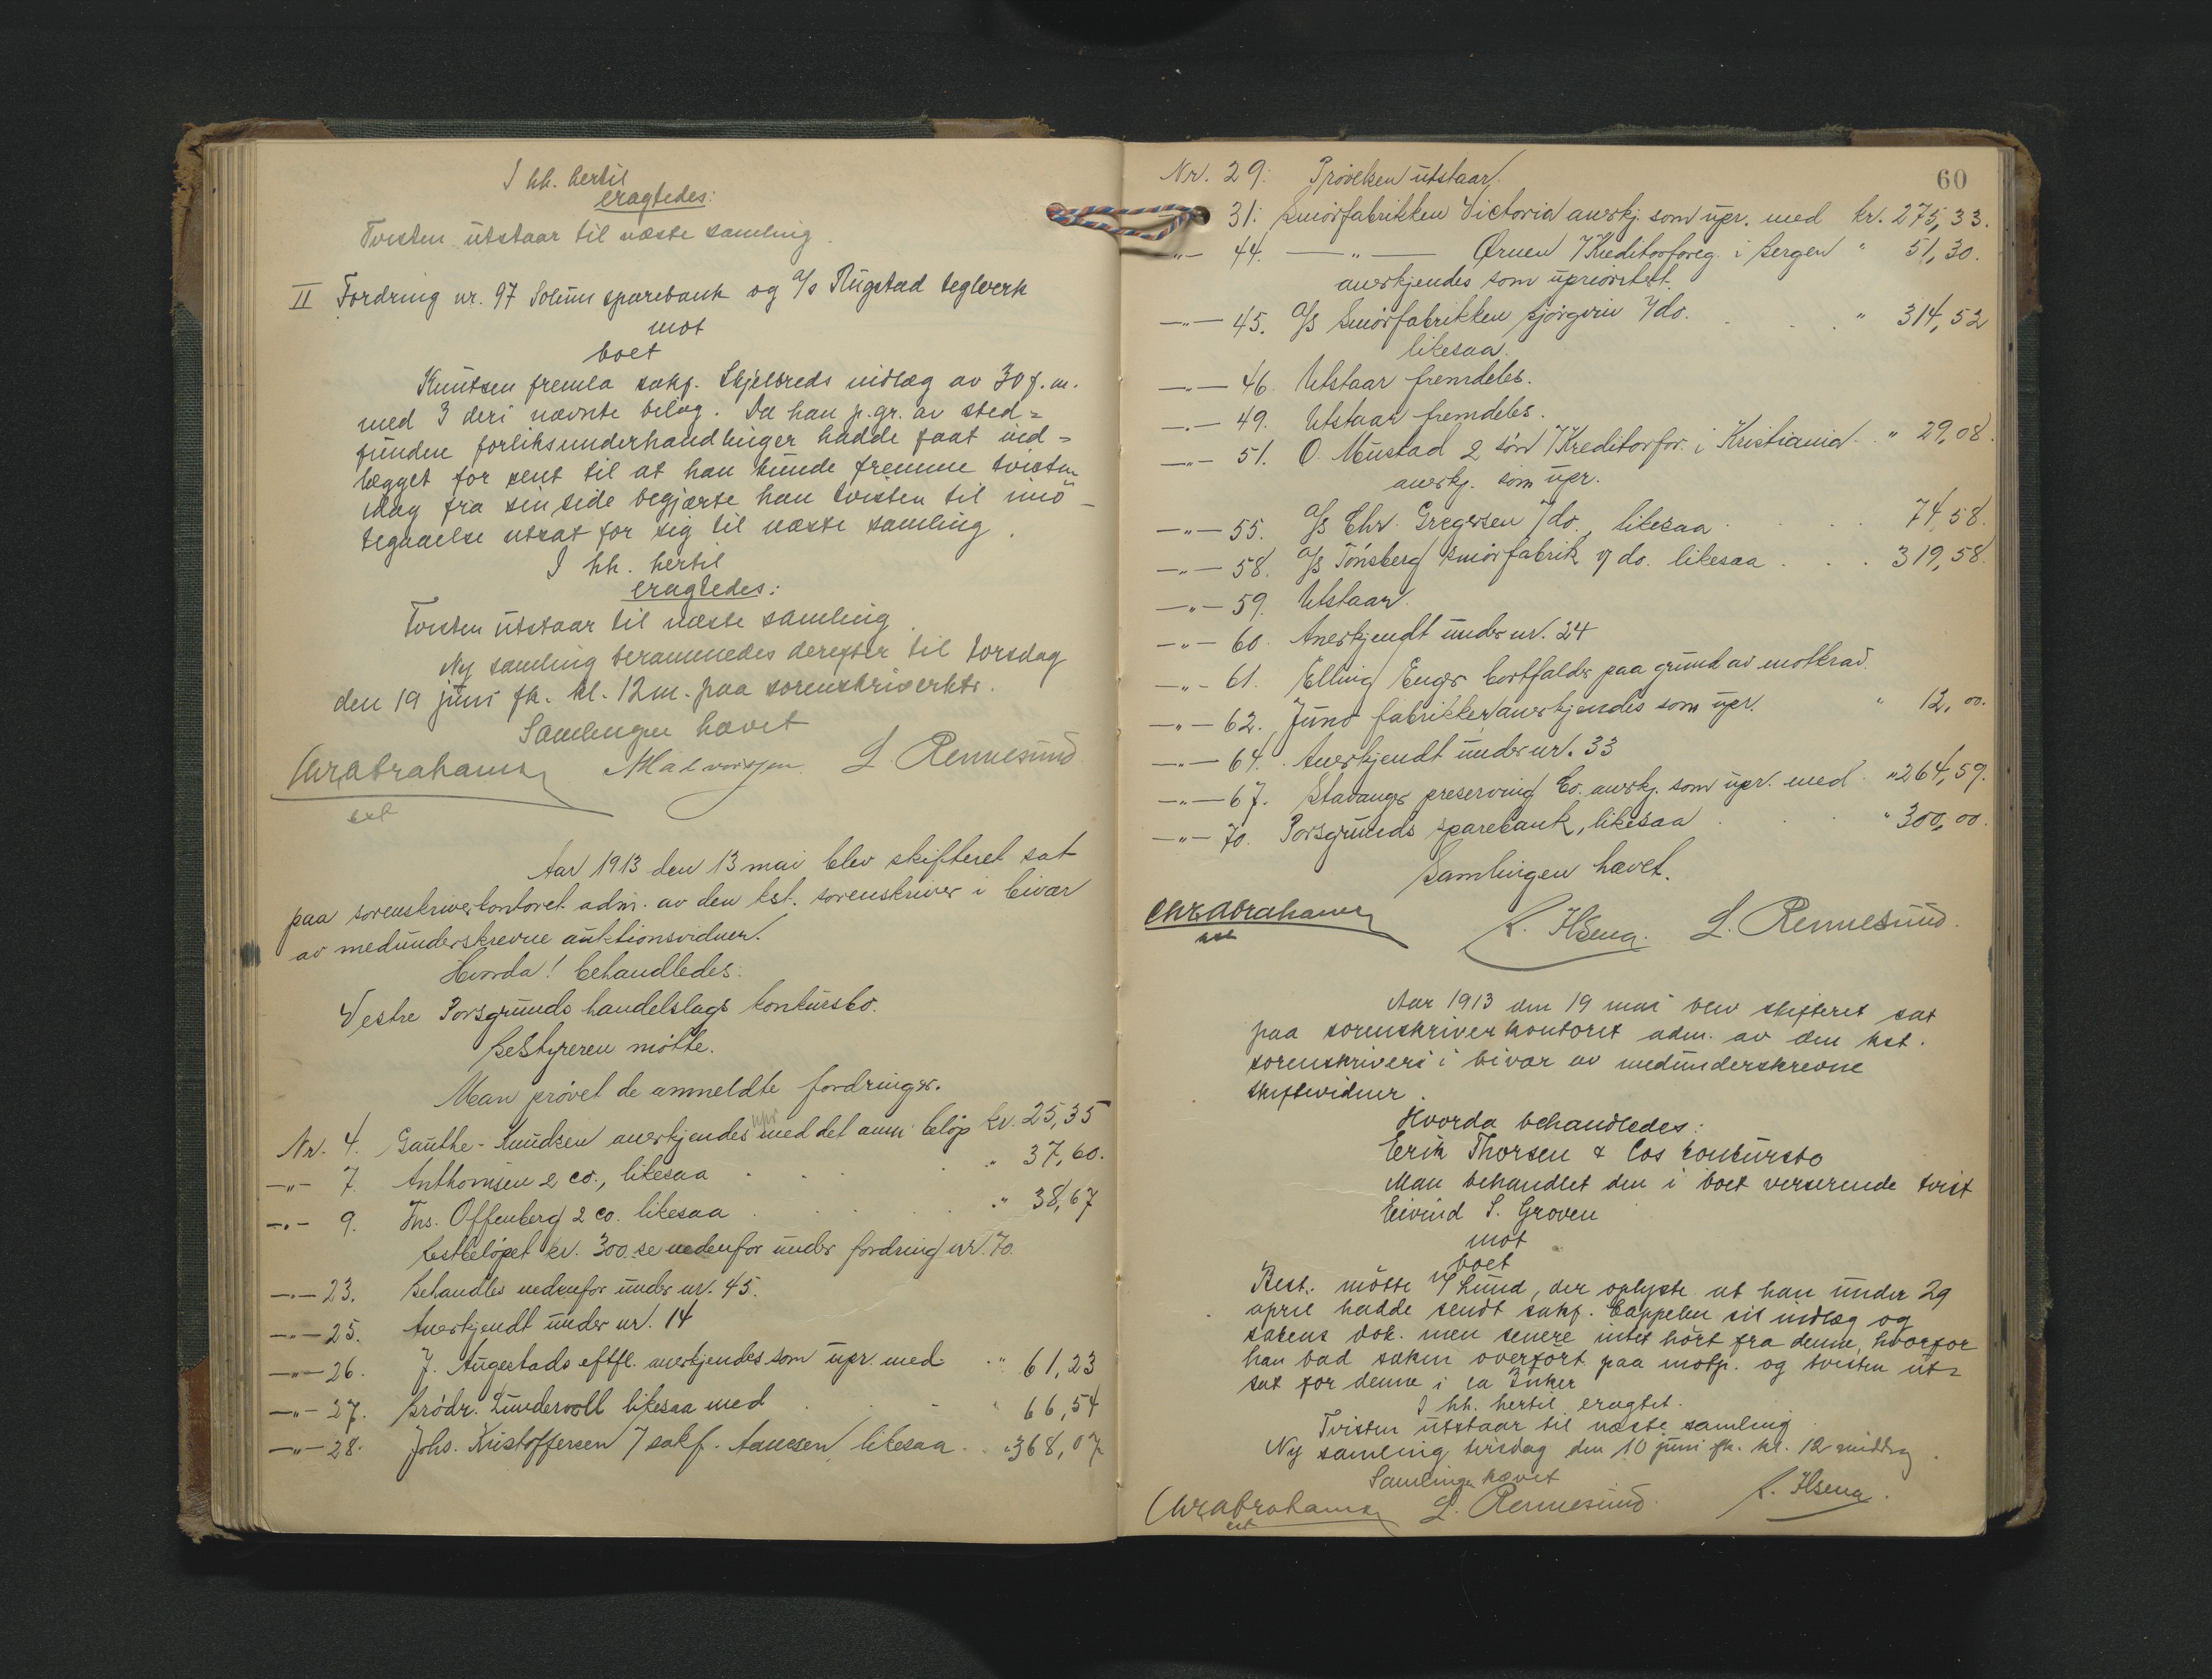 I hh. hertil
eragtedes:
Tvisten utstaar til næste samling.
II Fordring nr. 97 Solum sparebank og A/s Rugstad teglverk
mot
boet
Knutsen fremla sakf. Skjelbreds indlæg av 30 f.m.
med 3 deri nævnte bilag. Da han p.gr. av sted=
funden forliksunderhandlinger hadde faat ind=
lægget for sent til at han kunde fremme tvisten
idag fra sin side begjærte han tvisten til imø-
tegaaelse utsat for sig til næste samling.
I hh. hertil
eragtedes:
Tvisten utstaar til næste samling.
Ny samling berammedes derefter til torsdag
den 19 juni fk. kl. 12 m. paa sorenskriverktr.
Samlingen hævet
Chr Abrahamsen Halvorsen L. Rennesund
cst
Aar 1913 den 13 mai blev skifteret sat
paa sorenskriverkontoret adm. av den kst. sorenskriver i bivær
av medunderskrevne auktionsvidner.
Hvorda! behandledes:
Vestre Porsgrunds handelslags konkursbo.
Bestyreren møtte.
Man prøvet de anmeldte fordringer.
Nr. 4. Gauthe-Knudsen anerkjendes upr med det anm. beløp kr. 25,35
—"— 7. Anthomsen & co., likesaa " 37,60.
—"— 9. Fns. Offenberg & co. likesaa " 38,67
Restbeløpet kr. 300 se nedenfor under fordring nr. 70.
—"— 23. Behandles nedenfor under nr. 45.
—"— 25. Anerkjendt under nr. 14
—"— 26. J. Augestads eftfl. anerkjendes som upr. med " 61,23
—"— 27. Brødr. Lundervoll likesaa med " 66,54
—"— 28. Johs. Kristoffersen / sakf. Aanesen, likesaa " 368,07
60
Nr. 29. Prøvelsen utstaar.
31: Smørfabrikken Victoria anerkj. som upr. med kr. 275,33.
—"— 44. —"— Ørnen / Kreditorforeg. i Bergen " 51,30.
anerkjendes som uprioritert.
—"— 45. A/s Smørfabrikken Bjørgvin / do. " 314,52
likesaa.
—"— 46. Utstaar fremdeles.
—"— 49. Utstaar fremdeles.
—"— 51. O. Mustad & søn / Kreditorfor. i Kristiania " 29,08.
anerkj. som upr.
—"— 55. A/s Chr. Gregersen / do., likesaa 74,58.
—"— 58. A/s Tønsberg smørfabrik / do. likesaa 319,58.
—"— 59. Utstaar.
—"— 60. Anerkjendt under nr. 24
—"— 61. Elling Enger bortfalder paa grund av motkrav.
—"— 62. Juno fabrikker anerkjendes som upr. " 12,00.
—"— 64. Anerkjendt under nr. 33
—"— 67. Stavanger preserving Co. anerkj. som upr. med " 264,59.
—"— 70. Porsgrunds sparebank, likesaa " 300,00.
Samlingen hævet.
Chr Abrahamsen L. Rennesund.
cst
Aar 1913 den 19 mai blev skifteret sat
paa sorenskriverkontoret adm. av den kst.
sorenskriver i bivær av medunderskrevne
skiftevidner.
Hvorda behandledes:
Erik Thorsen & Cos konkursbo
Man behandlet den i boet verserende tvist
Eivind S. Groven
mot
boet
Best. møtte v/ Lund, der oplyste at han under 29
april hadde sendt sakf. Cappelen sit indlæg og
sakens dok. men senere intet hørt fra denne, hvorfor
han bad saken overført paa motp. og tvisten ut=
sat for denne i ca 3 uker
I hh. hertil eragtet.
Tvisten utstaar til næste samling.
Ny samling tirsdag den 10 juni fk. kl. 12 middag.
Samlingen hævet
Chr Abrahamsen L. Rennesund.
cst